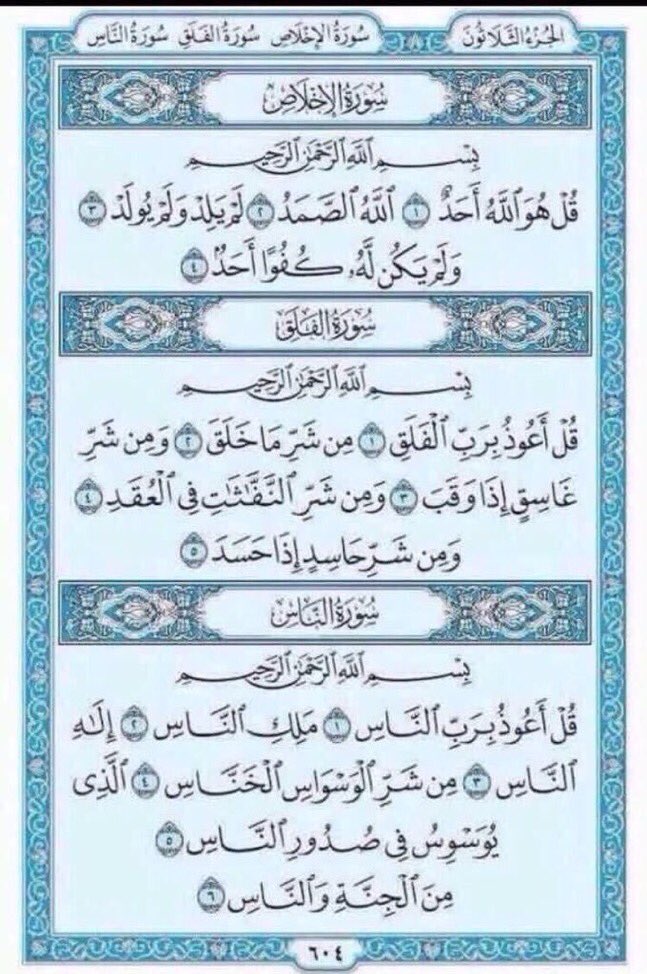 الجزء الثلاثون
سورة الإخلاص سورة الفلق سورة الناس
سورة الإخلاص
بسم الله الرحمن الرحيم
قُلْ هُوَ ٱللَّهُ أَحَدٌ ١ ٱللَّهُ ٱلصَّمَدُ ٢ لَمْ يَلِدْ وَلَمْ يُولَدْ ٣
وَلَمْ يَكُن لَّهُۥ كُفُوًا أَحَدٌۢ ٤
سورة الفلق
بسم الله الرحمن الرحيم
قُلْ أَعُوذُ بِرَبِّ ٱلْفَلَقِ ١ مِن شَرِّ مَا خَلَقَ ٢ وَمِن شَرِّ
غَاسِقٍ إِذَا وَقَبَ ٣ وَمِن شَرِّ ٱلنَّفَّٰثَٰتِ فِى ٱلْعُقَدِ ٤
وَمِن شَرِّ حَاسِدٍ إِذَا حَسَدَ ٥
سورة الناس
بسم الله الرحمن الرحيم
قُلْ أَعُوذُ بِرَبِّ ٱلنَّاسِ ١ مَلِكِ ٱلنَّاسِ ٢ إِلَٰهِ
ٱلنَّاسِ ٣ مِن شَرِّ ٱلْوَسْوَاسِ ٱلْخَنَّاسِ ٤ ٱلَّذِى
يُوَسْوِسُ فِى صُدُورِ ٱلنَّاسِ ٥
مِنَ ٱلْجِنَّةِ وَٱلنَّاسِ ٦
٦٠٤